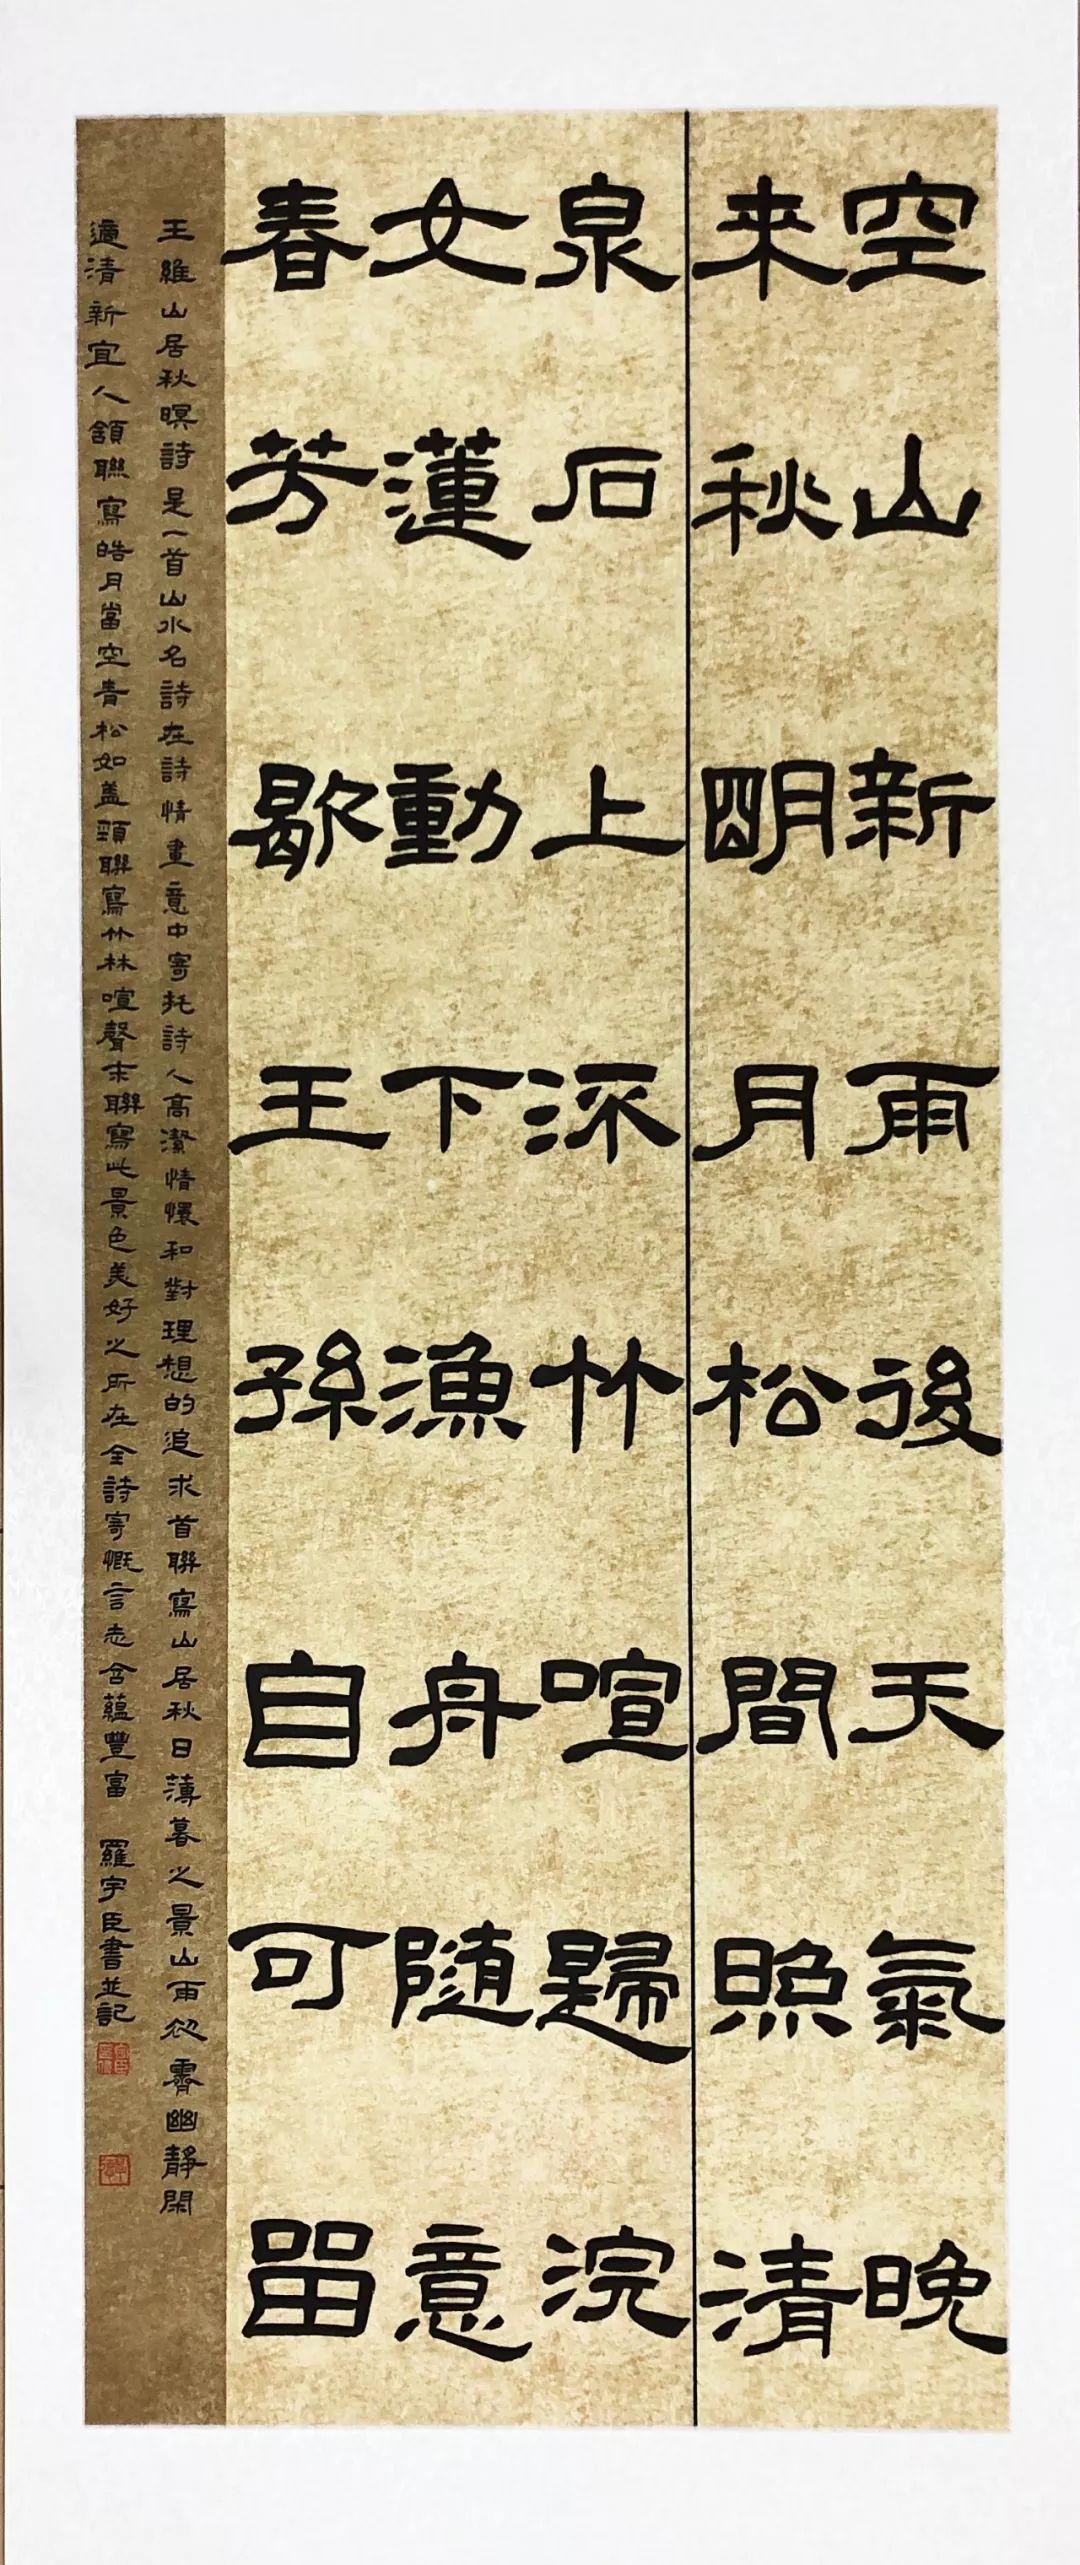 空山新雨後天氣晚
来秋明月松間照清
泉石上流竹喧歸浣
女蓮動下漁舟随意
春芳歇王孫自可留
王維山居秋暝詩是一首山水名詩在詩情畫意中寄托詩人高潔情懷和對理想的追求首聯寫山居秋日薄暮之景山雨初霽幽静閑
適清新宜人頷聯寫皓月當空青松如盖頸聯寫竹林喧聲末聯寫此景色美好之所在全詩寄慨言志含藴豐富 羅宇臣書並記